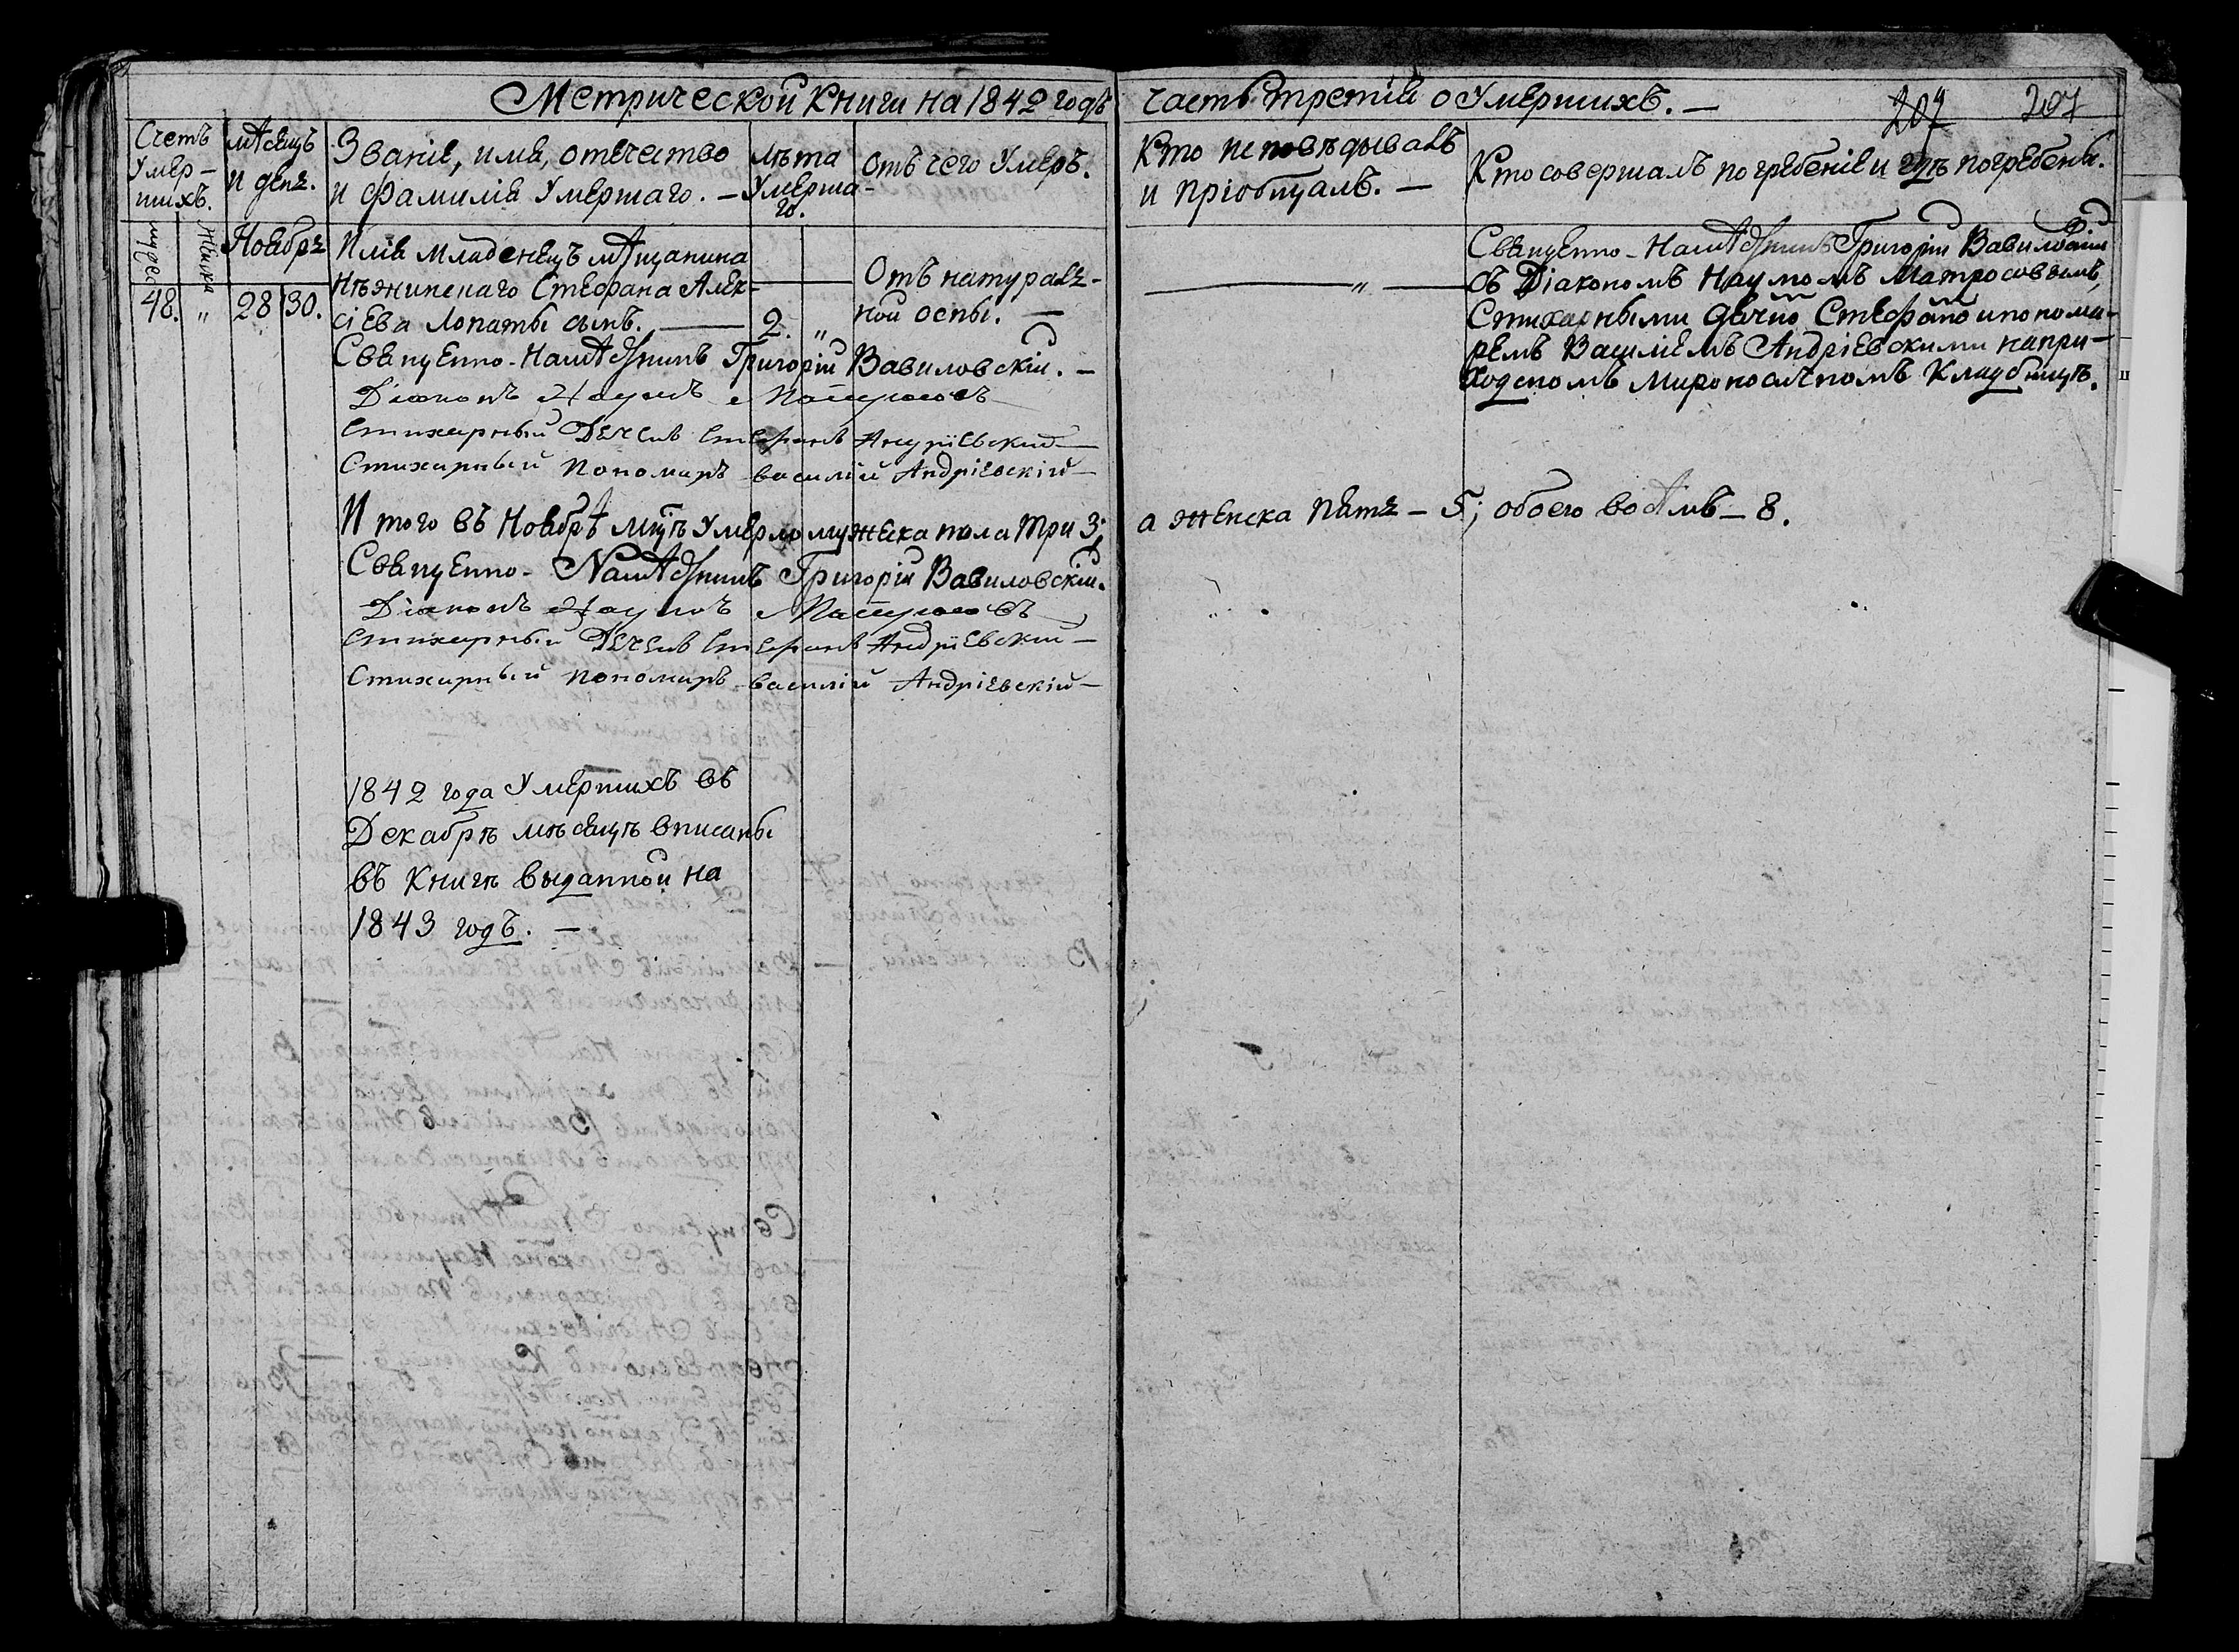 Метрической книги на 1842 годъ
часть третіи о Умершихъ. —
207
207
Счетъ Умер-шихъ.
мѣсяцъ и день.
Званіе, имя, отечество
и фамилія Умершаго. —
лѣта
Умерша-
го.
Отъ чего Умеръ.
Кто исповѣдывалъ
и пріобщалъ. —
Кто совершалъ погребеніе и гдѣ погребены.
мужеска
женска
Ноябрь
48. „ 28 30.
Илія младенецъ мѣщанина
Нѣжинскаго Стефана Алек-
сіева Лопаты сынъ. —
2. „
Отъ натураль-
ной оспы. —
— „ —
Священно-Намѣстникъ Григоріи Вавиловскіи
съ Діакономъ Наумомъ Матросовымъ,
Стихарными дячко Стефано и понома-
ремъ Василіемъ Андріевскими на при-
ходскомъ Мироносичномъ Кладбищѣ.
Священно-Намѣстникъ Григоріи Вавиловскіи. —
Діаконъ Наумъ Матросовъ
Стихарный Дячекъ Стефанъ Андріевский —
Стихарный Пономарь Василій Андріевскій —
Итого въ Ноябрѣ мцѣ Умерло мужеска пола три 3;
а женска пять — 5; обоего восѣмь — 8.
Священно-Намѣстникъ Григоріи Вавиловскіи.
Діаконъ Наумъ Матросовъ
Стихарный Дячекъ Стефанъ Андріевский —
Стихарный Пономарь Василій Андріевскій —
1842 года Умершихъ въ
Декабрѣ мѣсяцѣ вписаны
въ Книгѣ выданной на
1843 годъ. —